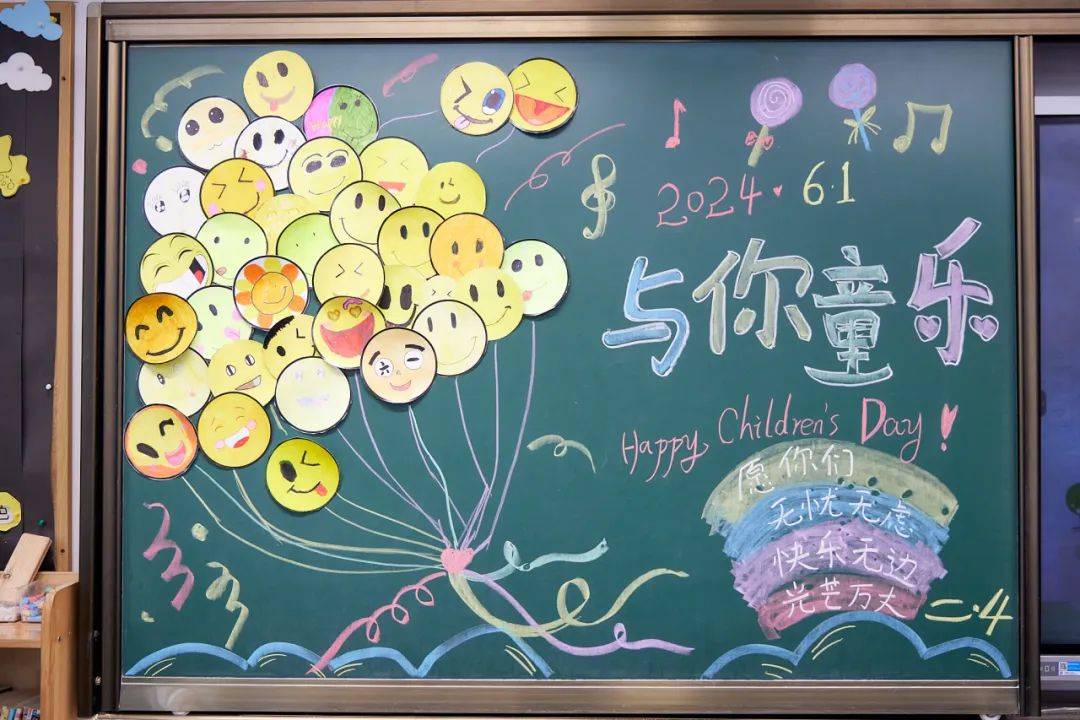 HAPPY
六一
2024.6.1
与你童乐
Happy Children's Day!
愿你们
无忧无虑
快乐无边
光芒万丈
二.4